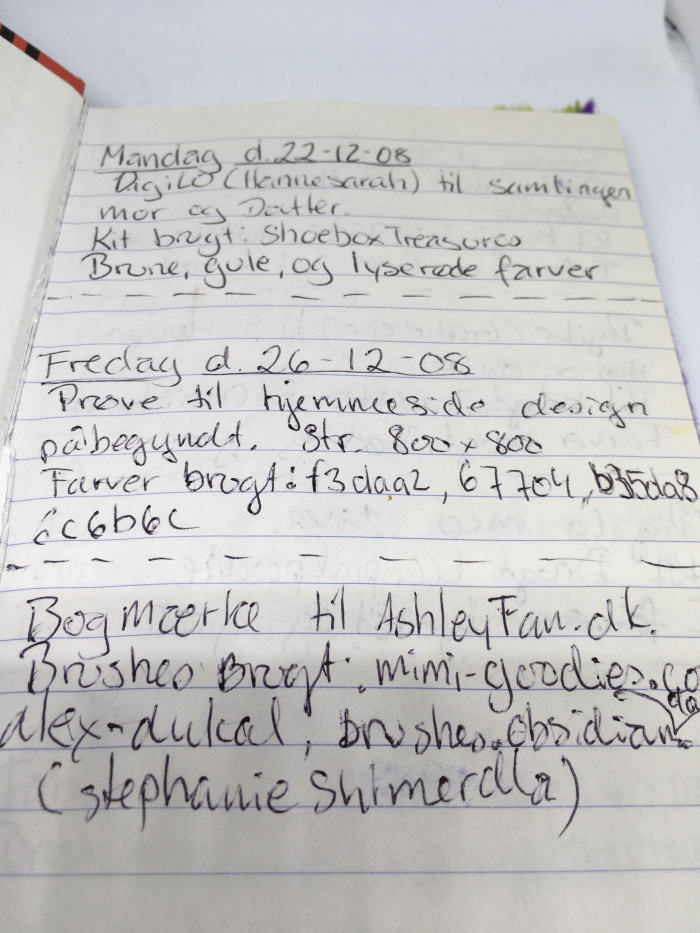 Mandag d. 22-12-08
DigiLO (Hannesarah) til samlingen
mor og Datter.
Kit brugt: ShoeboxTreasures
Brune, gule, og lyserøde farver
Fredag d. 26-12-08
Prøve til hjemmeside design
påbegyndt. Str. 800x800
Farver brugt: f3daa2, 67704, b35da8
6c6b6c
Bogmærke til AshleyFan.dk.
Brushes Brugt: mimi-goodies.co
alex-dukal, brushes.obsidian
(stephanie Shimerdla)